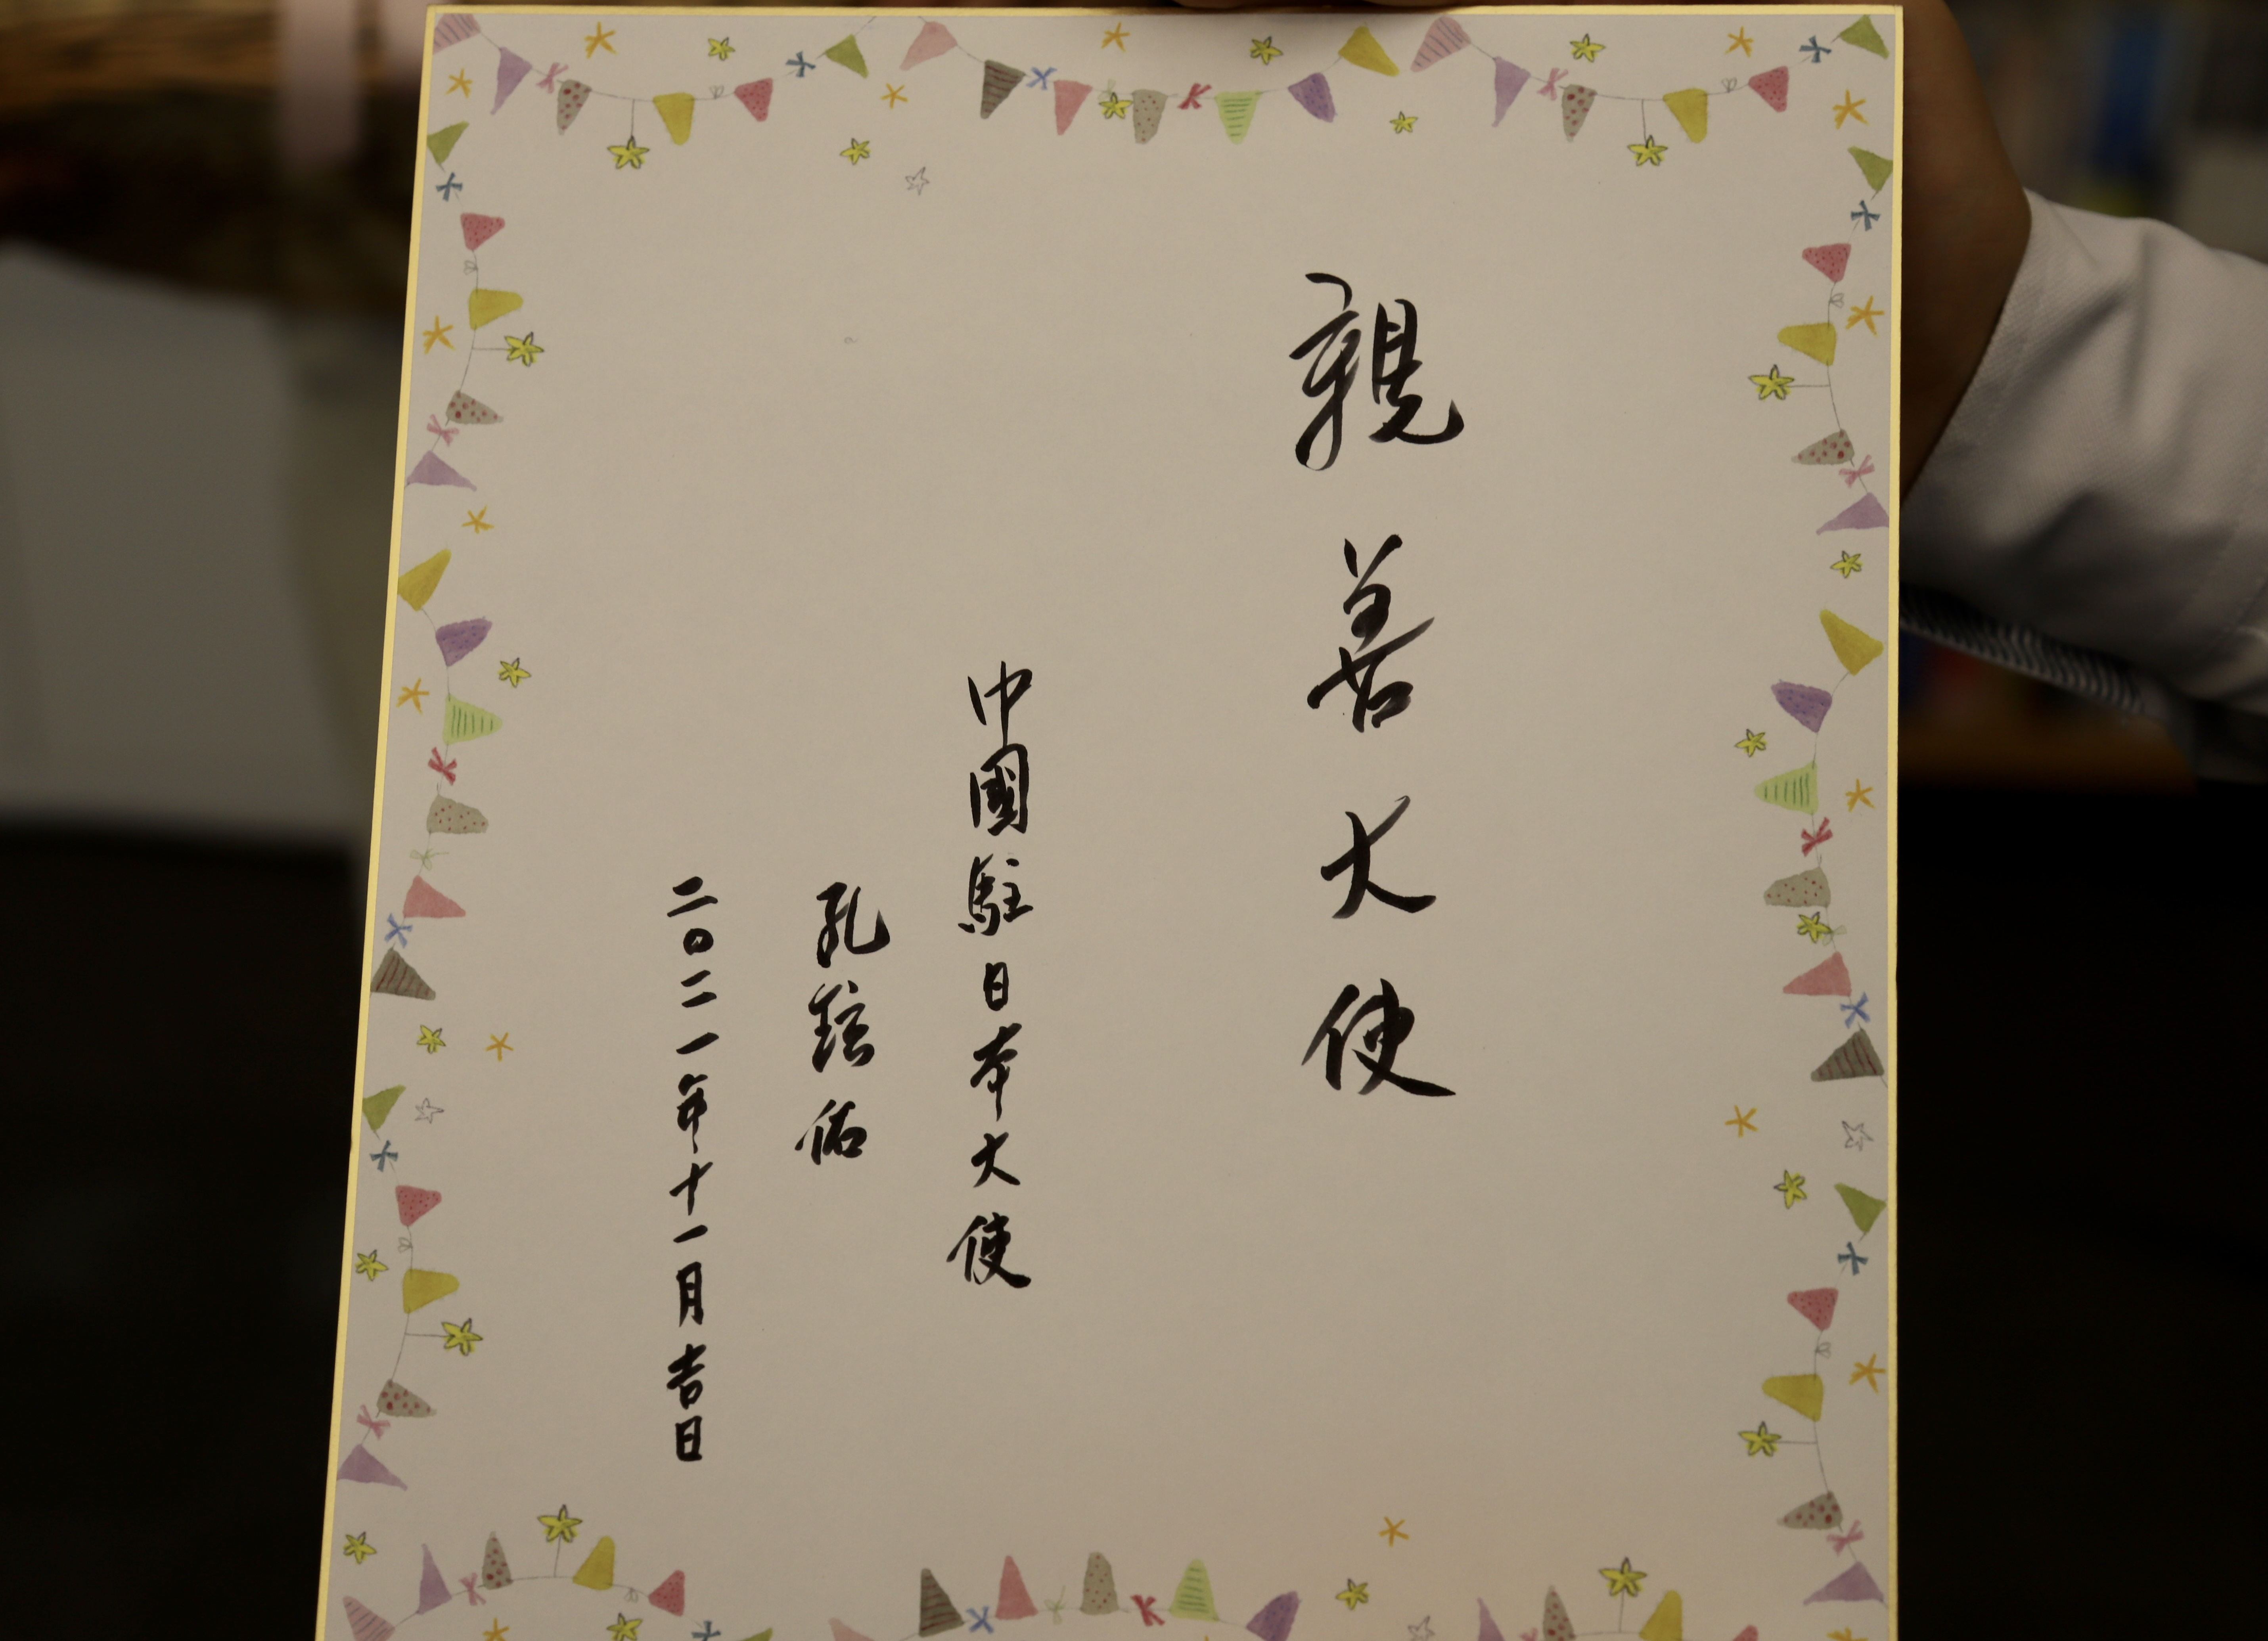 親善大使
中國駐日本大使
孔鉉佑
二〇二一年十一月吉日